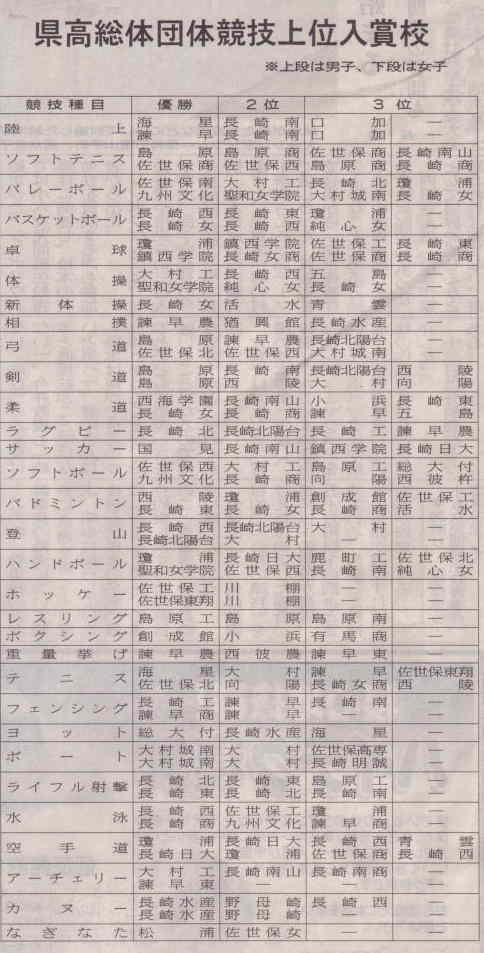 県高総体団体競技上位入賞校
※上段は男子、下段は女子
競技種目 優勝 2位 3位
陸上 海星 長崎南 口加 —
諫早 長崎南 口加 —
ソフトテニス 島原 島原商 佐世保商 長崎南山
佐世保商 佐世保西 島原商 長崎商
バレーボール 佐世保南 大村工 長崎北 瓊浦
九州文化 聖和女学院 大村城南 長崎女
バスケットボール 長崎西 長崎東 瓊浦 —
長崎女 長崎西 純心女 —
卓球 瓊浦 鎮西学院 佐世保工 長崎東
鎮西学院 長崎女商 佐世保商 長崎商
体操 大村工 長崎西 五島 —
聖和女学院 純心女 長崎女 —
新体操 長崎女 活水 青雲 —
相撲 諫早農 猶興館 長崎水産 —
弓道 島原 諫早農 長崎北陽台 —
佐世保北 佐世保西 大村城南 —
剣道 島原 長崎南 長崎北陽台 西陵
島原 西陵 大村 向陽
柔道 西海学園 長崎南山 小浜 長崎東
長崎女 長崎商 諫早 五島
ラグビー 長崎北 長崎北陽台 長崎工 諫早農
サッカー 国見 長崎南山 鎮西学院 長崎日大
ソフトボール 佐世保西 大村工 島原工 総大付
九州文化 長崎商 向陽 西彼杵
バドミントン 西陵 瓊浦 創成館 佐世保工
長崎東 長崎女 長崎商 活水
登山 長崎西 長崎北陽台 大村 —
長崎北陽台 大村 — —
ハンドボール 瓊浦 長崎日大 鹿町工 佐世保北
聖和女学院 佐世保西 長崎南 純心女
ホッケー 佐世保工 川棚 — —
佐世保東翔 川棚 — —
レスリング 島原工 島原 島原南 —
ボクシング 創成館 小浜 有馬商 —
重量挙げ 諫早農 西彼農 諫早東 —
テニス 海星 大村 諫早 佐世保東翔
佐世保北 向陽 長崎女商 西陵
フェンシング 長崎工 諫早 長崎南 —
諫早商 諫早 — —
ヨット 総大付 長崎水産 海星 —
ボート 大村城南 大村 佐世保高専 —
大村城南 大村 長崎明誠 —
ライフル射撃 長崎北 長崎東 島原工 —
長崎東 長崎北 長崎南 —
水泳 長崎西 佐世保工 瓊浦 —
長崎商 九州文化 諫早商 —
空手道 瓊浦 長崎日大 長崎西 青雲
長崎日大 瓊浦 佐世保商 長崎西
アーチェリー 大村工 長崎南山 長崎南商 —
諫早東 — — —
カヌー 長崎水産 野母崎 長崎西 —
長崎水産 野母崎 — —
なぎなた 松浦 佐世保女 — —